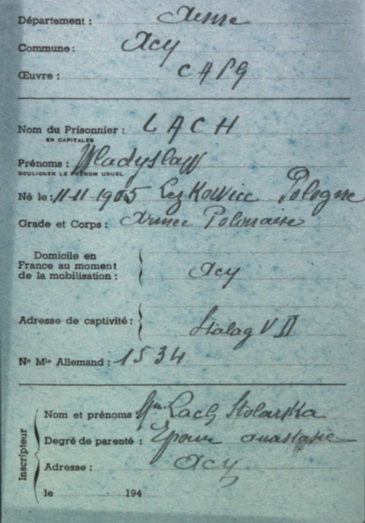 Département : Aisne
Commune : Acy
Œuvre : CAPG
Nom du Prisonnier : LACH
EN CAPITALES
Prénoms : Wladyslaw
SOULIGNER LE PRÉNOM USUEL
Né le : 11-11-1905 Pologne
Grade et Corps : Armée Polonaise
Domicile en
France au moment
de la mobilisation : Acy
Adresse de captivité : Stalag V D
N° Mle Allemand : 1534
Inscripteur
Nom et prénoms : Mme Lach Stolarska
Degré de parenté : Epouse anastasie
Adresse : Acy
le 194